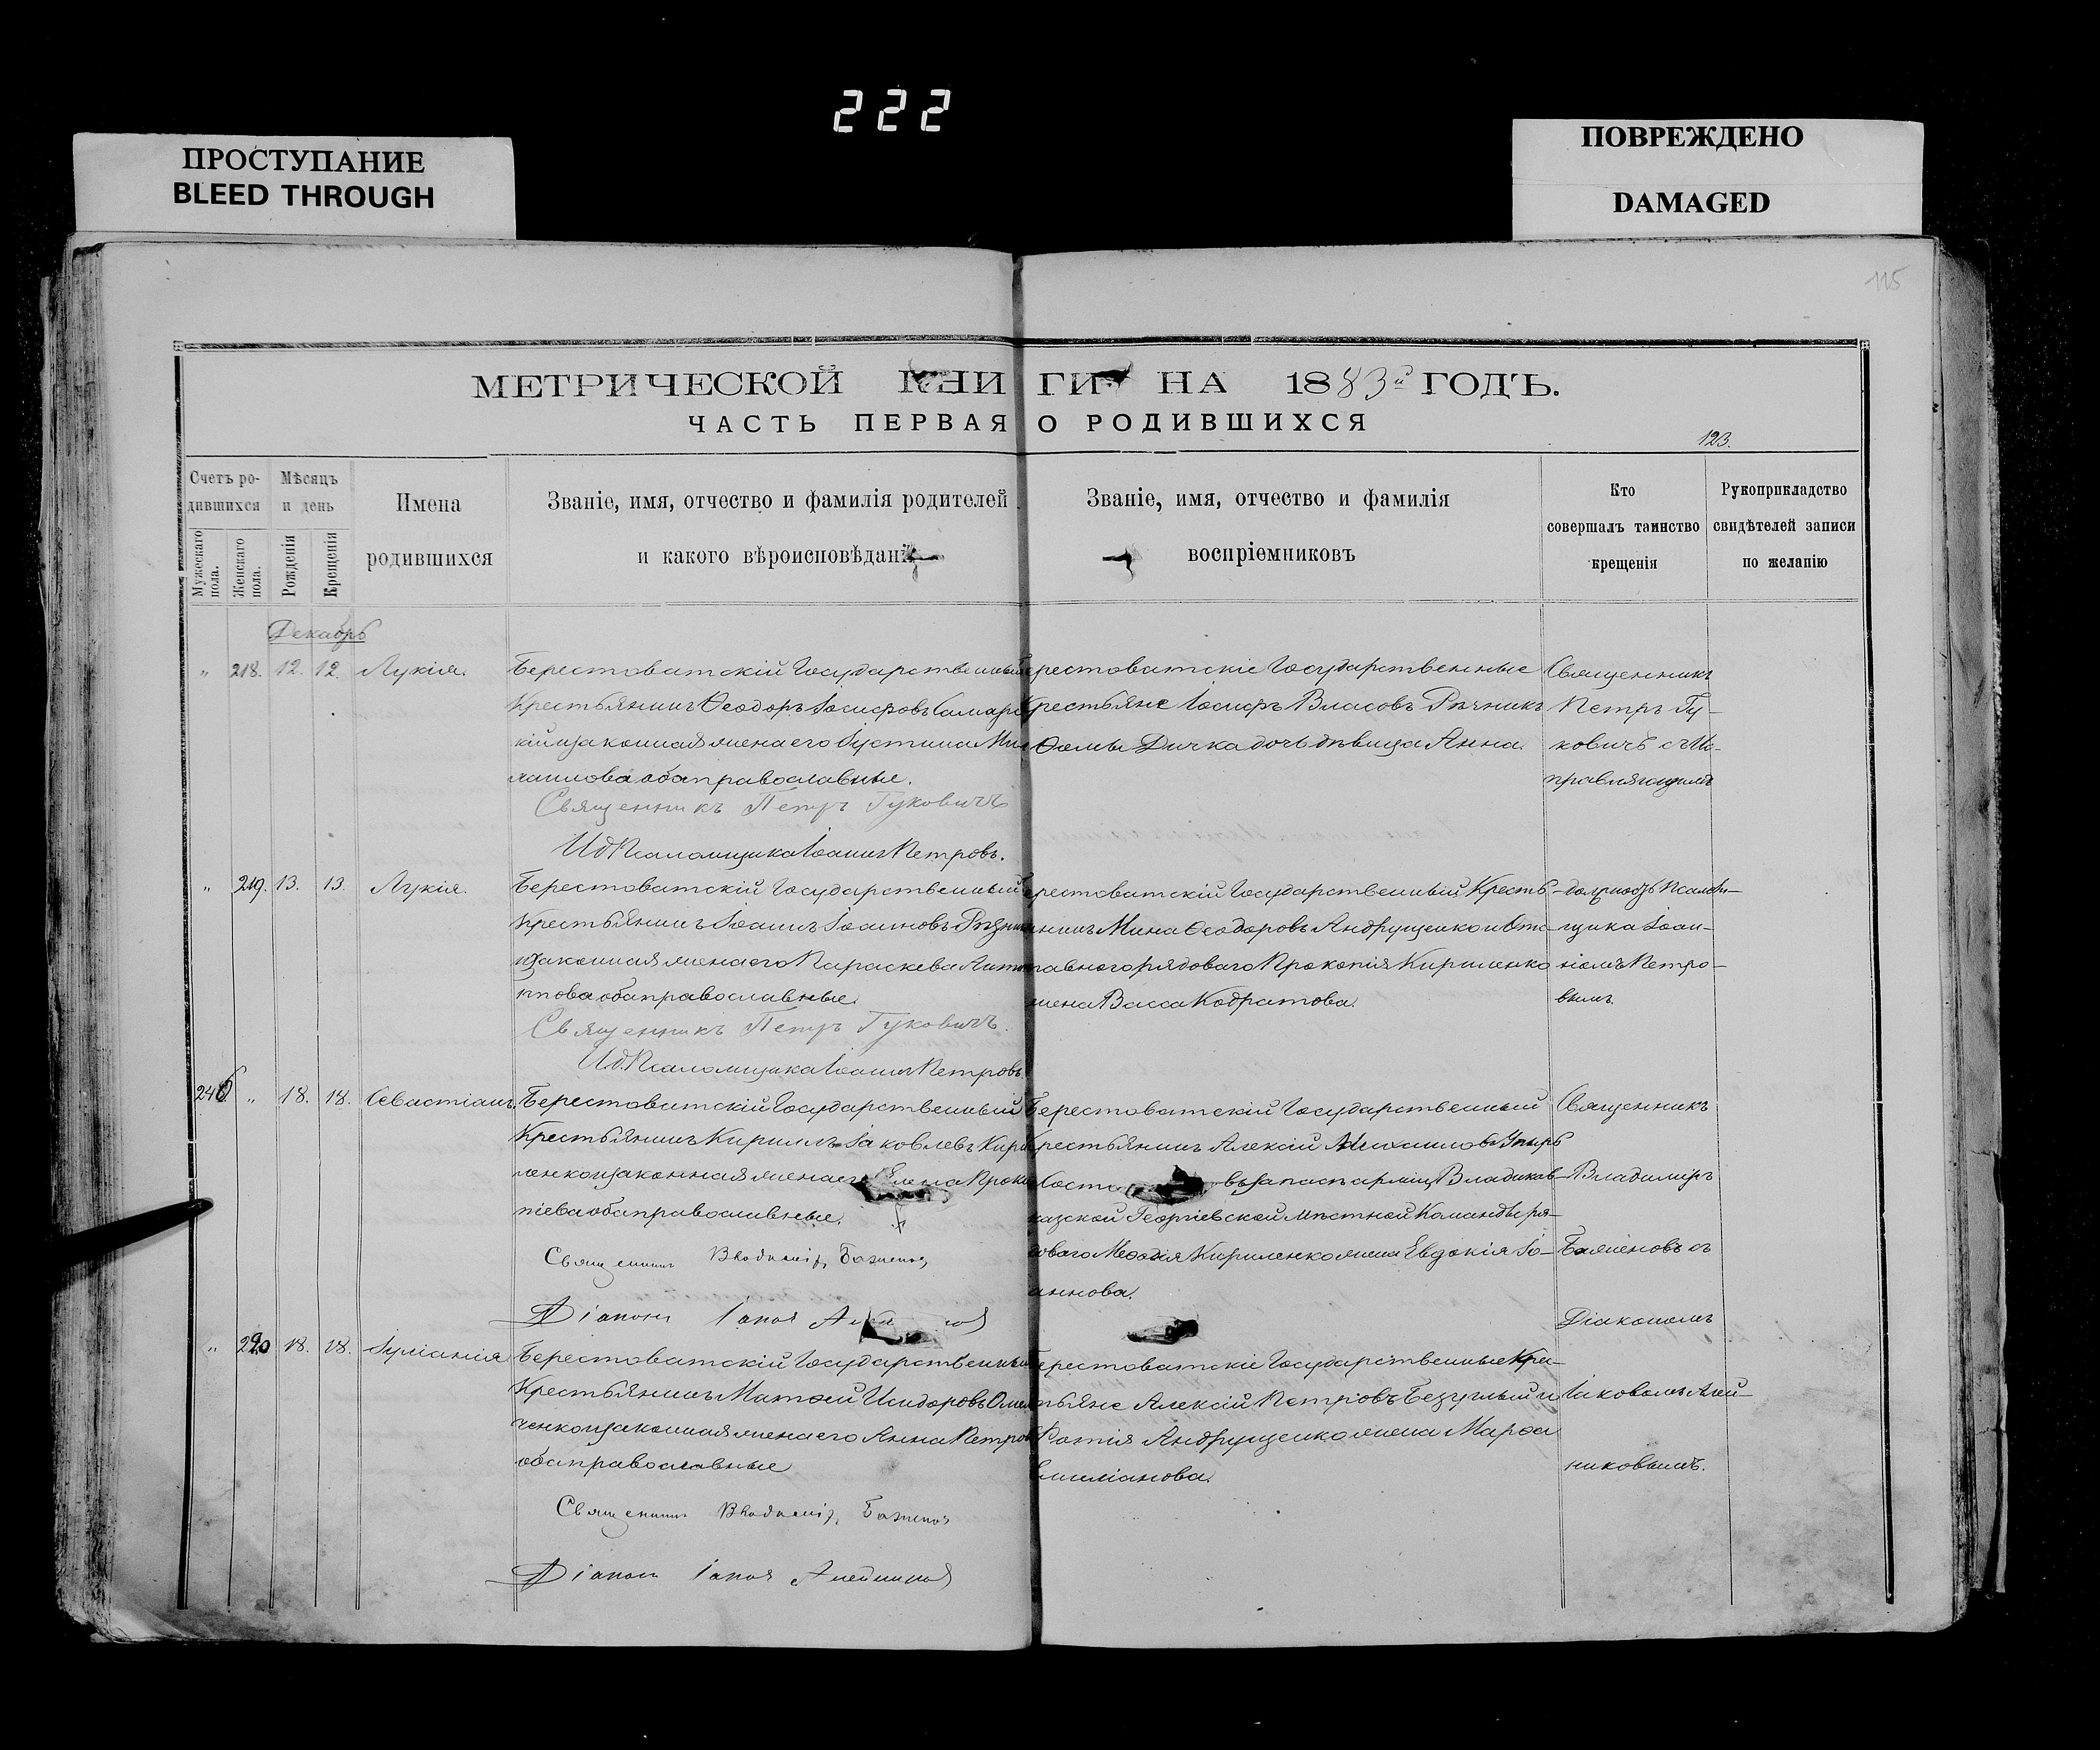 222
ПРОСТУПАНИЕ
BLEED THROUGH
ПОВРЕЖДЕНО
DAMAGED
115
МЕТРИЧЕСКОЙ КНИГИ НА 1883й ГОДЪ.
ЧАСТЬ ПЕРВАЯ О РОДИВШИХСЯ
123.
Счетъ ро-
дившихся
Мужескаго пола.
Женскаго пола.
Мѣсяцъ
и день
Рожденія
Крещенія
Имена
родившихся
Званіе, имя, отчество и фамилія родителей
и какого вѣроисповѣдані
Званіе, имя, отчество и фамилія
воспріемниковъ
Кто
совершалъ таинство
крещенія
Рукоприкладство
свидѣтелей записи
по желанію
Декабрь
„ 218. 12. 12. Лукія.
Берестоватскій Государственный
Крестьянинъ Ѳеодоръ Іосифовъ Самарс
кій и законная жена его Іустина Ми
хаилова оба православные.
Священникъ Петръ Гуковичъ
И д Псаломщика Іоаннъ Петровъ.
Берестоватскіе Государственные
Крестьяне Іосифъ Власовъ Рѣчникъ
Ѳомы Дичка дочь дѣвица Анна.
Священникъ
Петръ Гу-
ковичъ съ Ис-
правляющимъ
„ 219. 13. 13. Лукія.
Берестоватскій Государственный
Крестьянинъ Іоаннъ Іоанновъ Рѣзни
и законная жена его Параскева Анти
пова оба православные.
Священникъ Петръ Гуковичъ.
И д. Псаломщика Іоаннъ Петровъ
Берестоватскій Государственный Кресть
янинъ Мина Ѳеодоровъ Андрущенко и Отс-
тавного рядоваго Прокопія Кириленко
жена Васса Кодратова.
-должность Псалом-
щика Іоан-
номъ Петро-
вымъ
246. „ 18. 18. Севастіанъ.
Берестоватскій Государственный
Крестьянинъ Кириллъ Іаковлевъ Кири
ленко и законная жена его Елена Проко
піева оба православные.
Священникъ Владиміръ Баженовъ
Діаконъ Іаковъ
Берестоватскій Государственный
Крестьянинъ Алексій Михаиловъ Упырь
Состо въ запасѣ арміи Владикав-
казской Георгіевской мѣстной Команды ря-
доваго Меѳодія Кириленко жена Евдокія Іо-
аннова.
Священникъ
Владиміръ
Баженовъ съ
Діакономъ
„ 220 18. 18. Іуліанія
Берестоватскій Государственный
Крестьянинъ Матѳей Исидоровъ Омел
ченко и законная жена его Анна Петров
оба православные
Священникъ Владиміръ Баженовъ
Діаконъ Іаковъ Алейниковъ
Берестоватскіе Государственные Кре-
стьяне Алексій Петровъ Безуглый и
Фотія Андрущенко жена Марѳа
Емиліанова.
Іаковомъ Алей-
никовымъ.